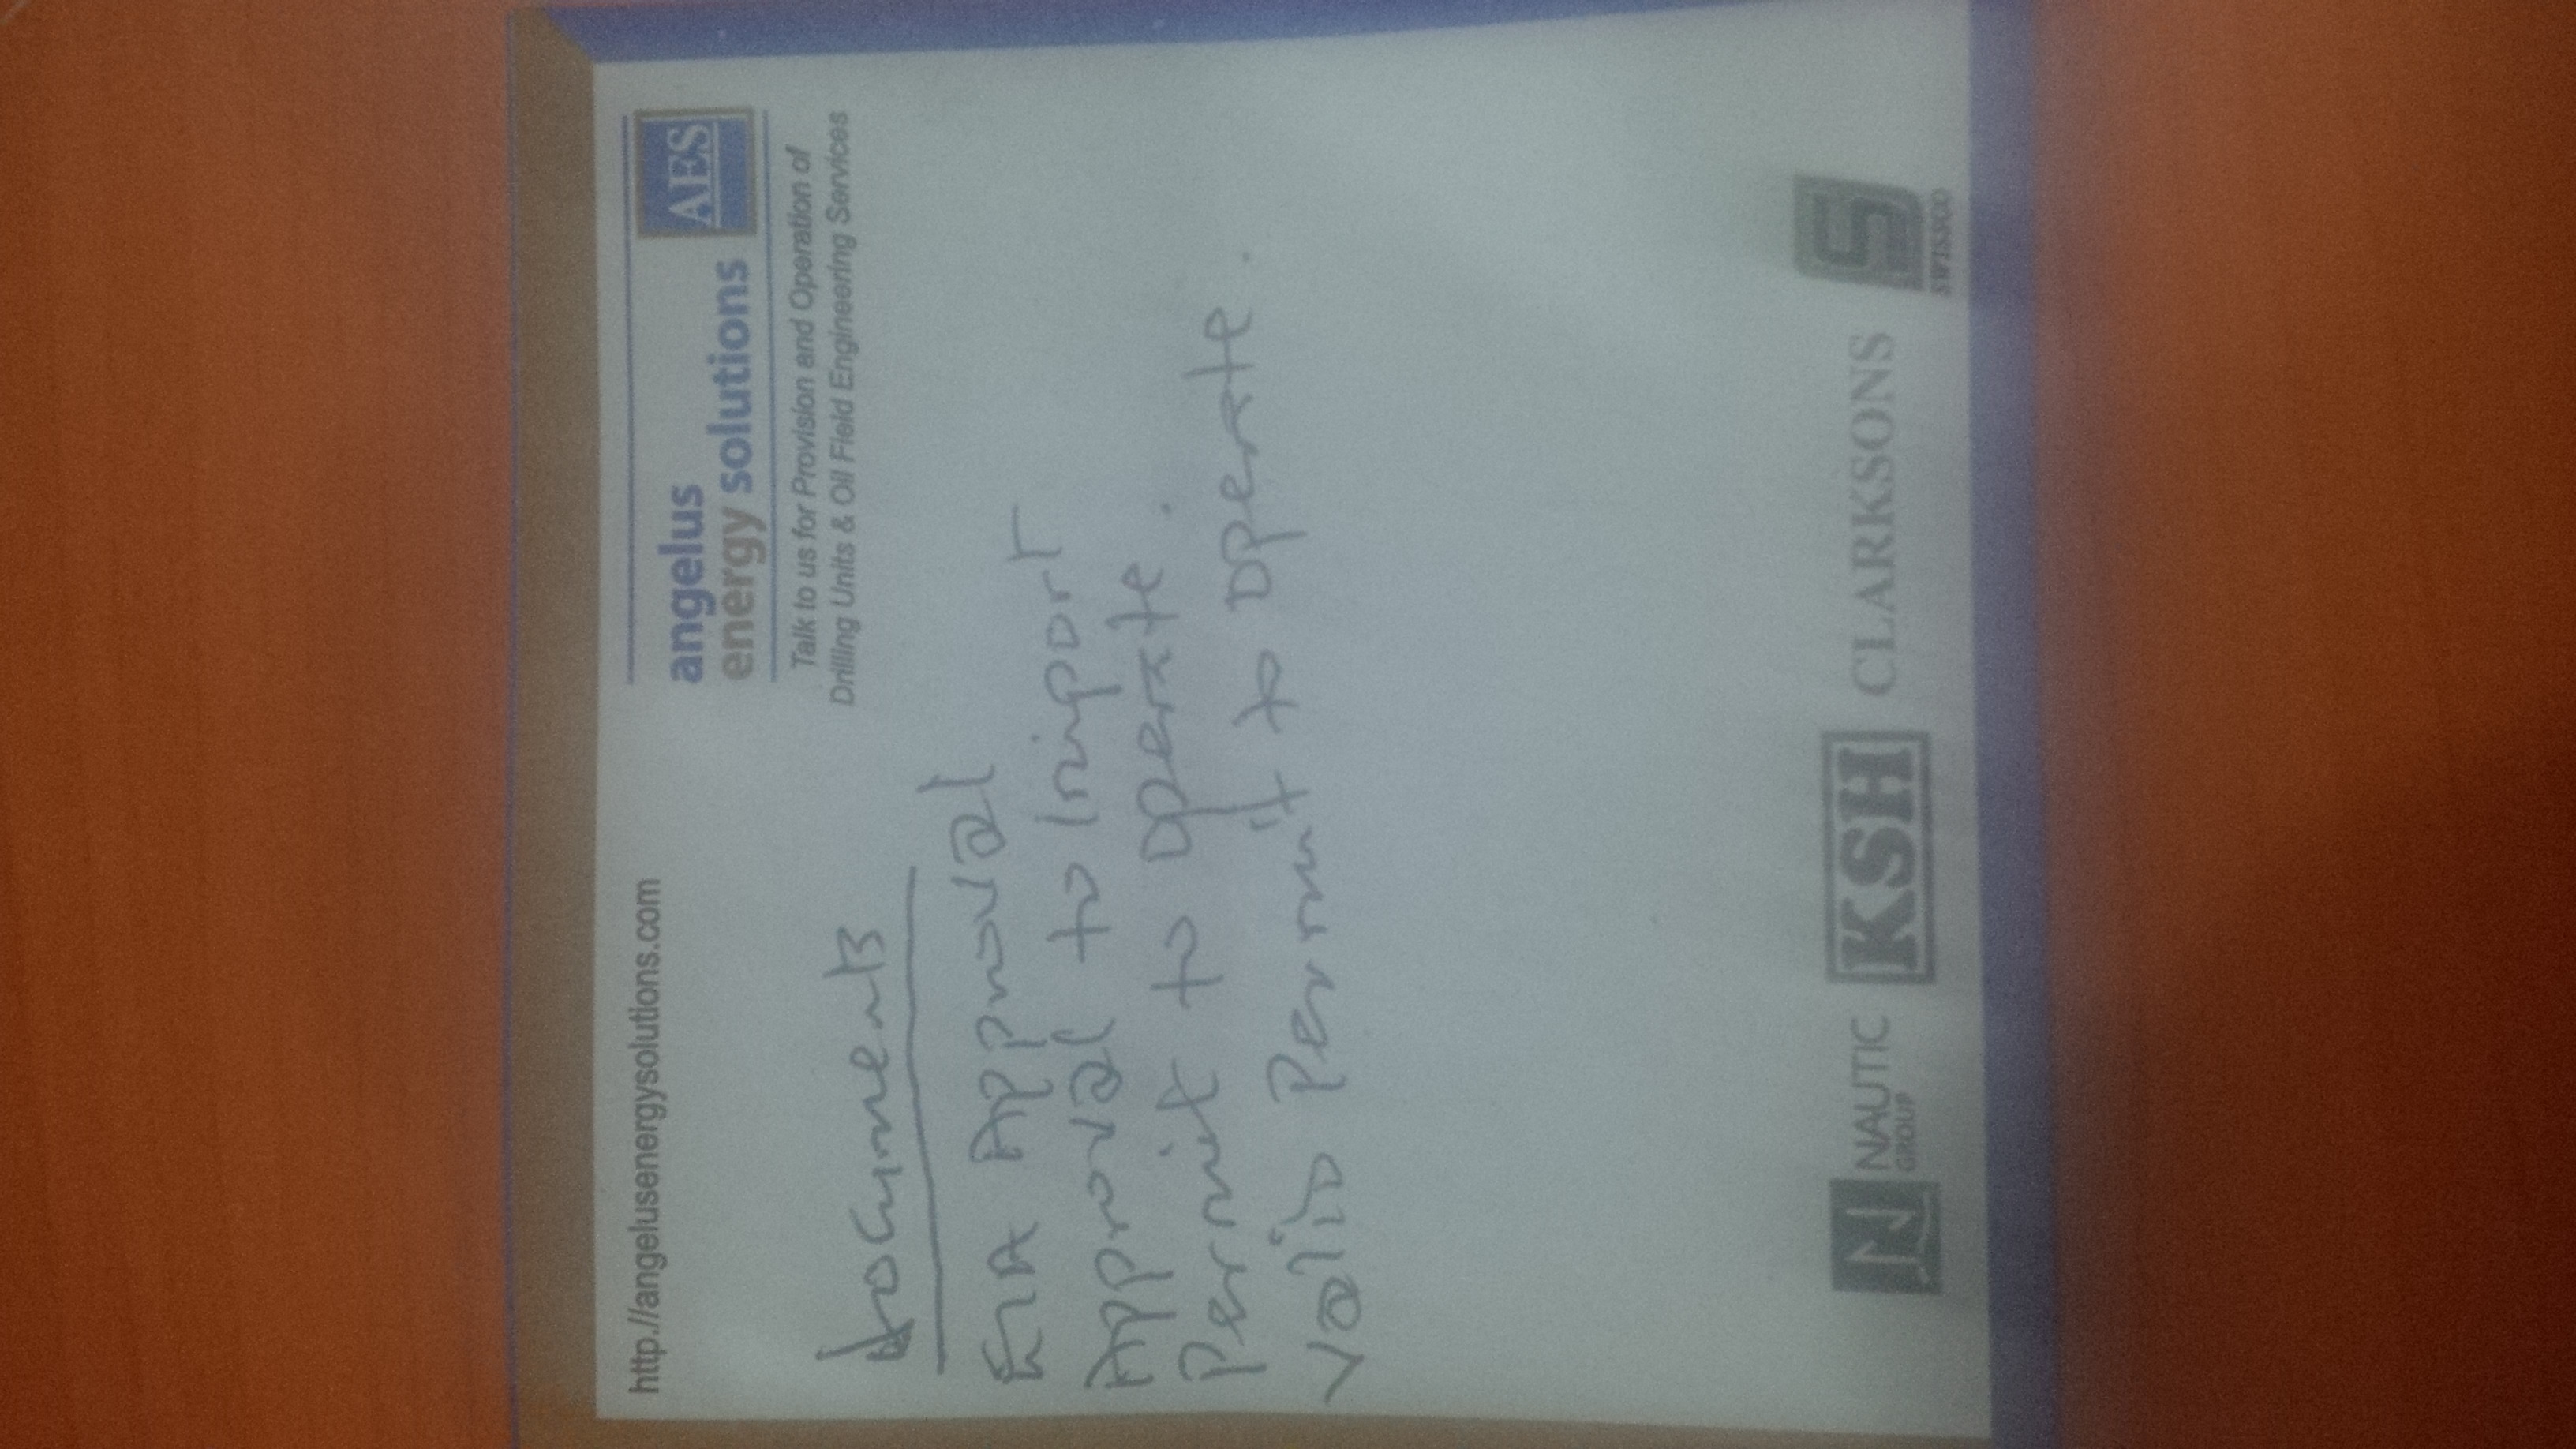 http.//angelusenergysolutions.com
angelus
energy solutions
AES
Talk to us for Provision and Operation of
Drilling Units & Oil Field Engineering Services
documents
EIA Approval
Approval to Import
Permit to operate.
Valid Permit to operate.
N NAUTIC
GROUP
KSH
CLARKSONS
S
SWISSCO